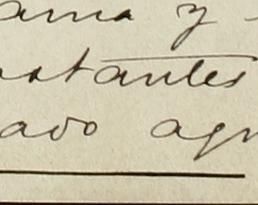 ama y
tantes
ado agr